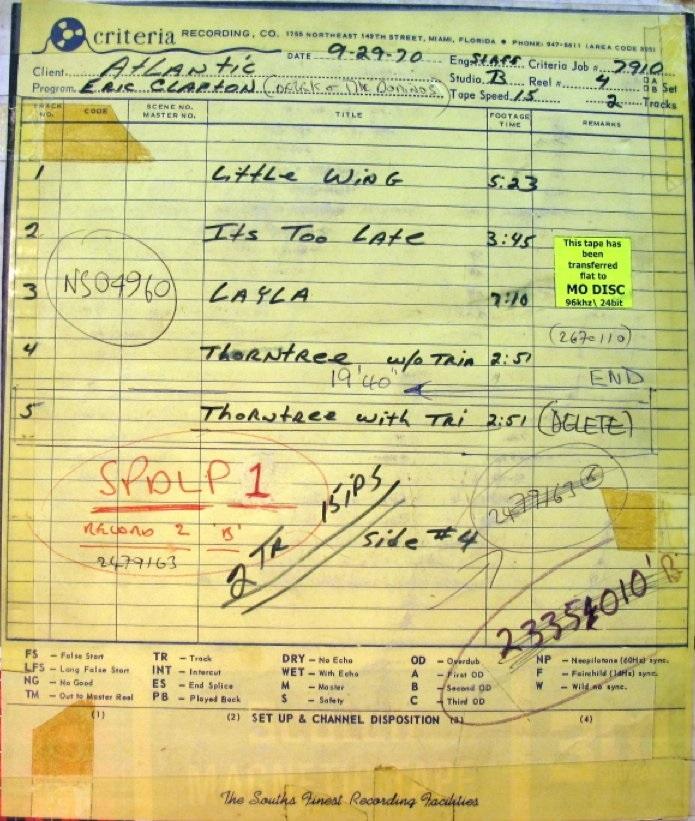 criteria RECORDING, CO. 1755 NORTHEAST 149TH STREET, MIAMI, FLORIDA • PHONE: 947-5611 (AREA CODE 305)
DATE 9-29-70 Eng. STAFF Criteria Job # 7910
Client. ATLANTIC Studio. B Reel # 4 □ A □ B Set
Program. ERIC CLAPTON (DEREK & THE DOMINOS) Tape Speed 15 2 Tracks
TRACK NO. CODE SCENE NO. MASTER NO. TITLE FOOTAGE TIME REMARKS
1 Little WinG 5:23
2 Its Too LAte 3:45
This tape has
been
transferred
flat to
MO DISC
96khz\ 24bit
NS04960
3 LAYLA 7:10
(267=110)
4 Thorntree w/o TRIA 2:51
19'40" END
5 Thorntree with TRI 2:51 (DELETE)
SPDLP 1
RECORD 2 'B'
2479163
2 TR 15 iPS
Side #4
2479163
23354010' B
FS – False Start TR – Track DRY – No Echo OD – Overdub NP – Neopilotone (60Hz) sync.
LFS – Long False Start INT – Intercut WET – With Echo A – First OD F – Fairchild (14Hz) sync.
NG – No Good ES – End Splice M – Master B – Second OD W – Wild no sync.
TM – Out to Master Reel PB – Played Back S – Safety C – Third OD
(1) (2) SET UP & CHANNEL DISPOSITION (3) (4)
The Souths Finest Recording Facilities